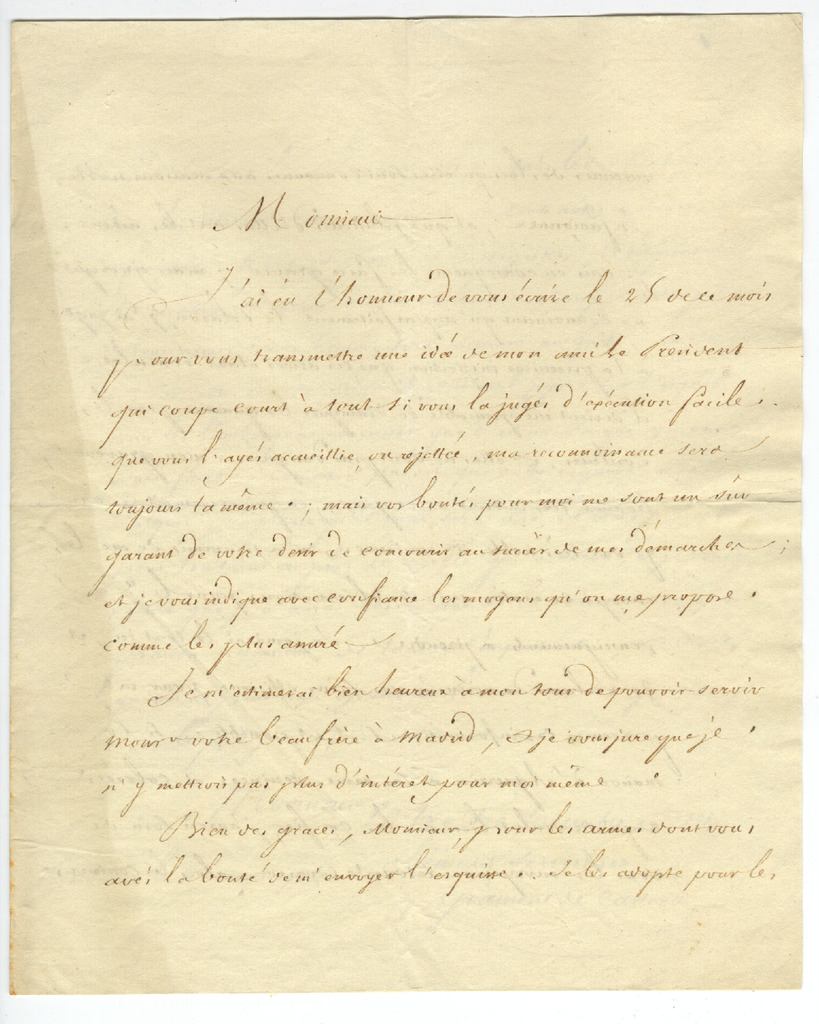 Monsieur
J'ai eu l'honneur de vous écrire le 25 de ce mois
pour vous transmettre une idée de mon ami le President
qui coupe court à tout si vous la jugés d'execution facile.
que vous l'ayés accueillie, ou rejettée, ma reconnoissance sera
toujours la même ; mais vos bontés pour moi me sont un sûr
garant de votre desir de concourir au succès de mes démarches ;
et je vous indique avec confiance les moyens qu'on me propose
comme les plus assuré
Je m'estimerai bien heureux à mon tour de pouvoir servir
Monsr votre beaufrère à Madrid, & je vous jure que je
n'y mettrois pas plus d'intéret pour moi même
Bien des graces, Monsieur, pour les armes dont vous
avés la bonté de m'envoyer l'esquisse. Je les adopte pour les